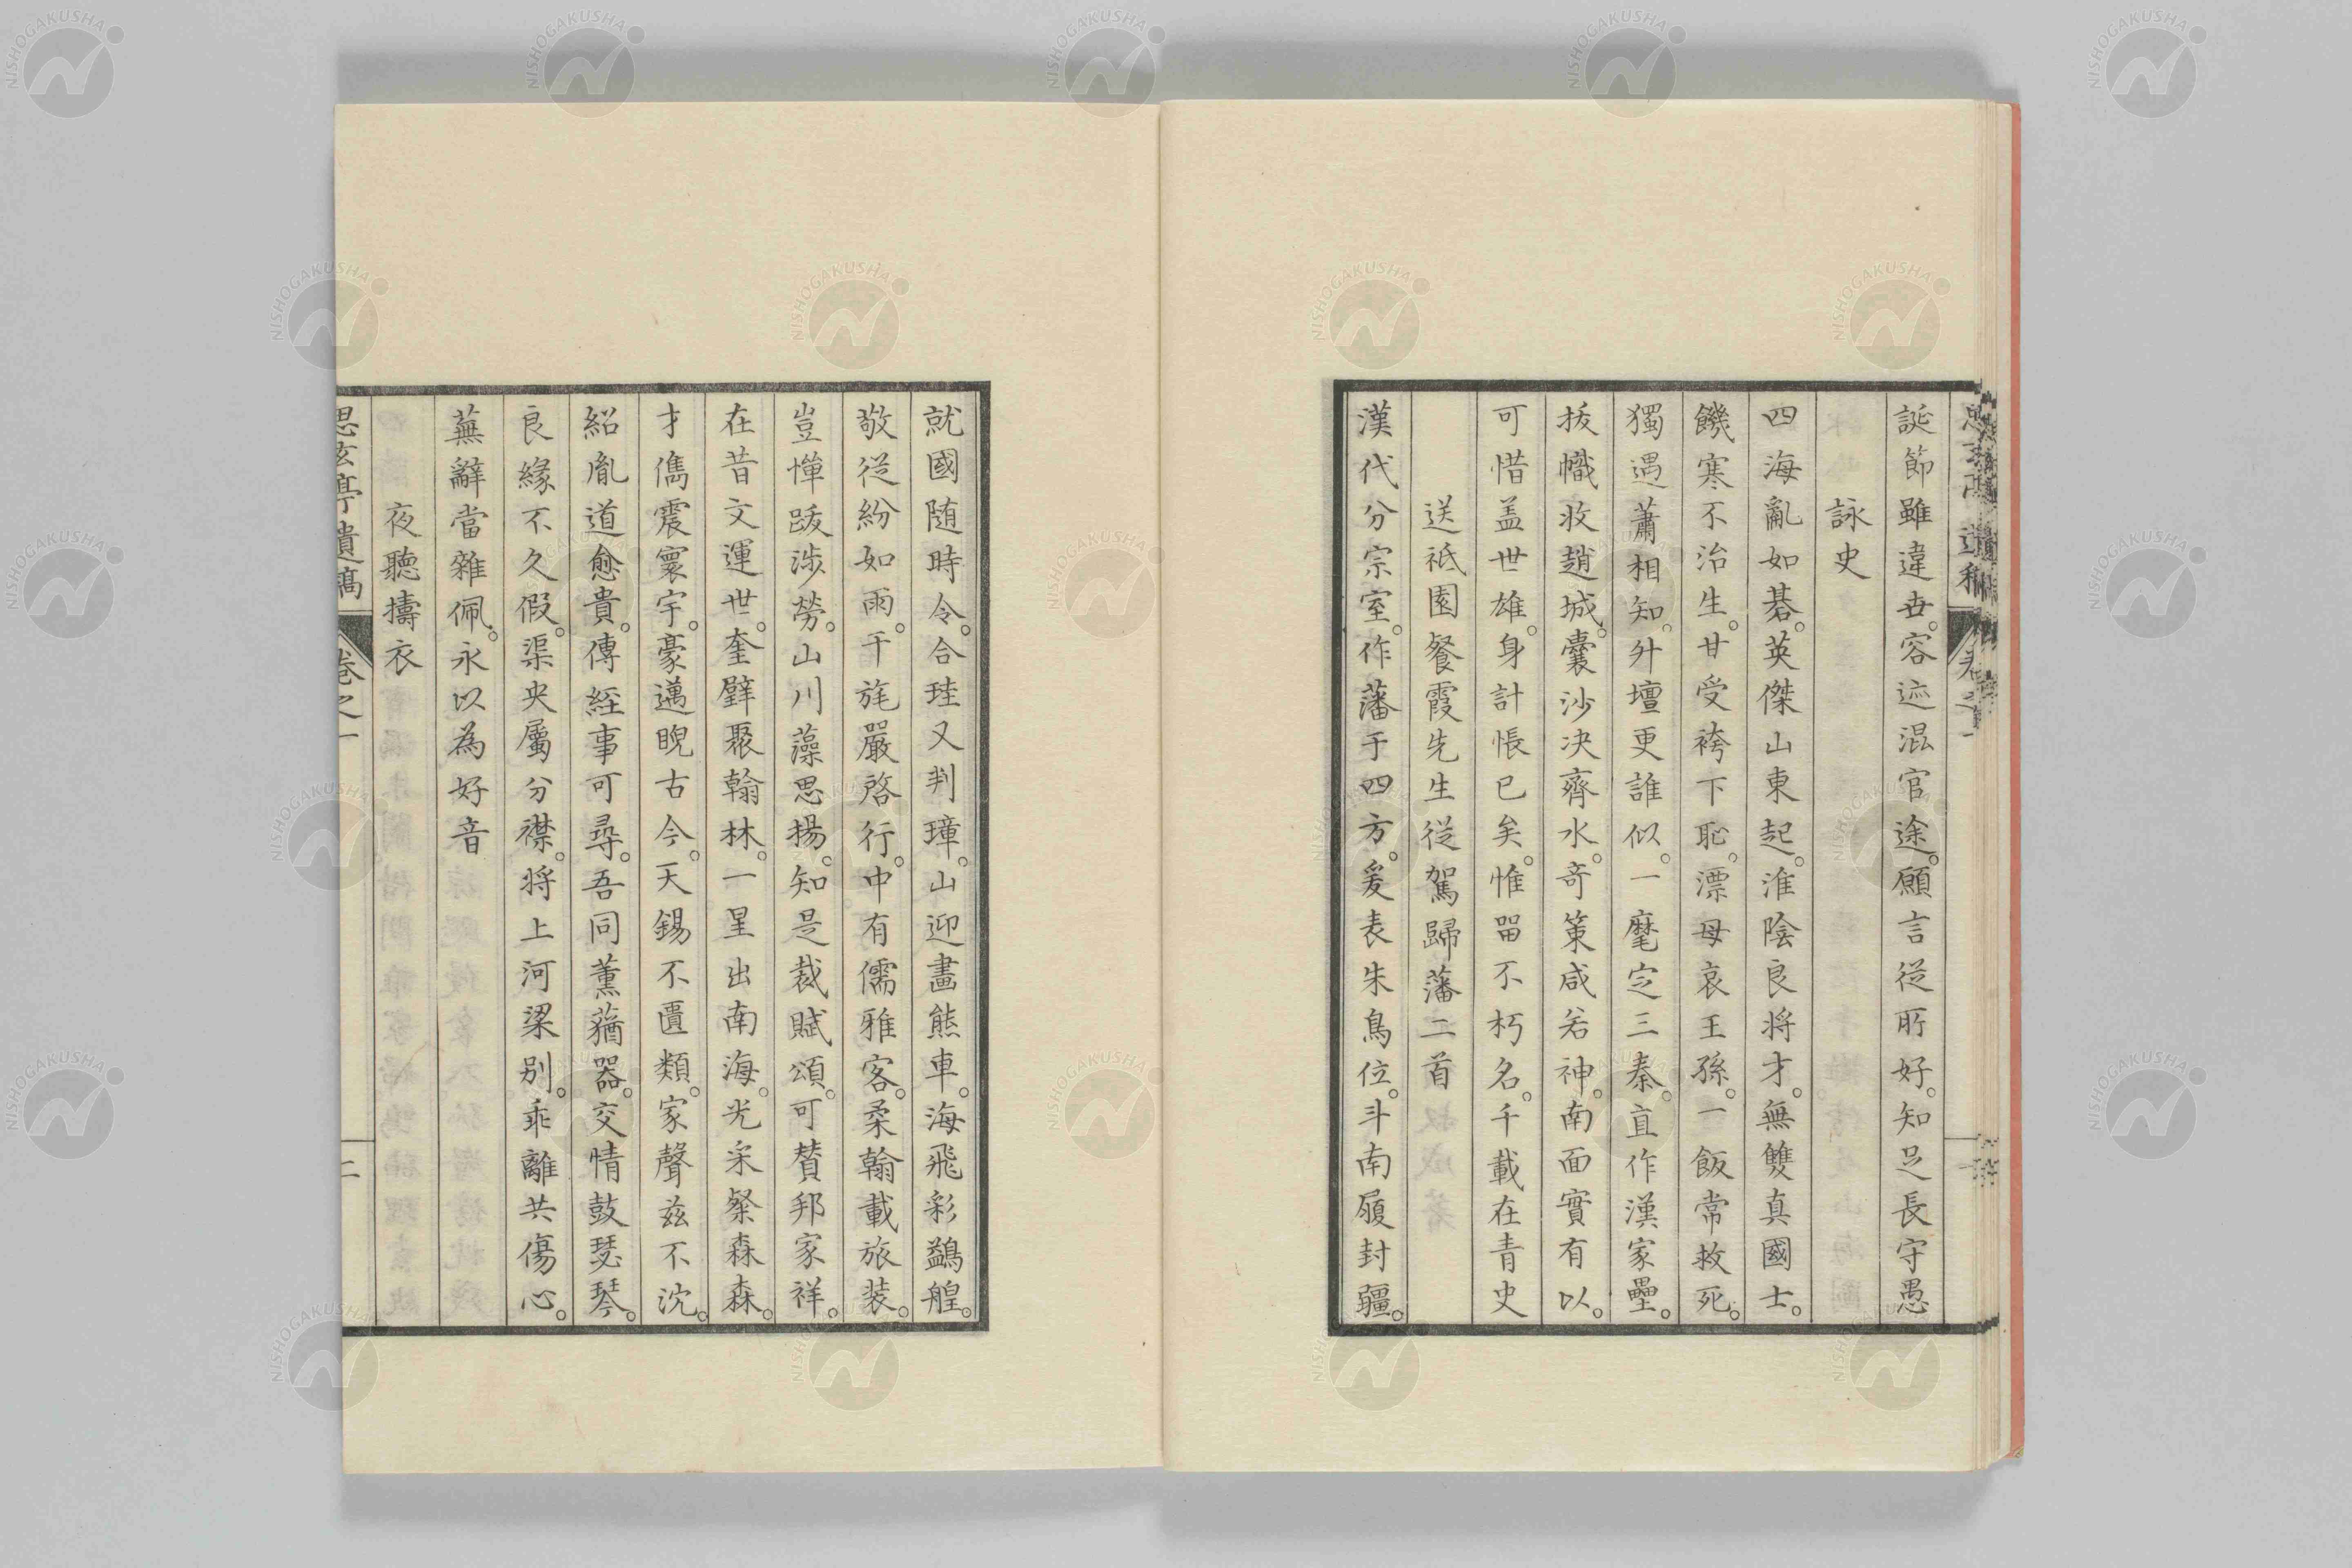 誕節雖違世。容迹混官途。願言從所好。知足長守愚
詠史
四海亂如碁。英傑山東起。淮陰良將才。無雙真國士。
饑寒不治生。甘受袴下恥。漂母哀王孫。一飯常救死。
獨遇蕭相知。升壇更誰似。一麾定三秦。直作漢家壘。
拔幟收趙城。囊沙决齊水。奇策咸若神。南面實有以。
可惜盖世雄。身計悵已矣。惟畱不朽名。千載在青史
送祇園餐霞先生從駕歸藩二首
漢代分宗室。作藩于四方。爰表朱鳥位。斗南履封疆。
就國随時令。合珪又判璋。山迎畫熊車。海飛彩鷁艎。
敬從紛如雨。干旄嚴啓行。中有儒雅客。柔翰載旅装。
豈憚跋涉勞。山川藻思揚。知是裁賦頌。可賛邦家祥。
在昔文運世。奎璧聚翰林。一星出南海。光采粲森森。
才儁震寰宇。豪邁睨古今。天錫不匱類。家聲兹不沈。
紹胤道愈貴。傳経事可尋。吾同薰蕕器。交情鼓瑟琴。
良緣不久假。渠央屬分襟。将上河梁别。乖離共傷心。
蕪辭當雜佩。永以為好音
夜聽擣衣
思玄亭遺稿 卷之一 二